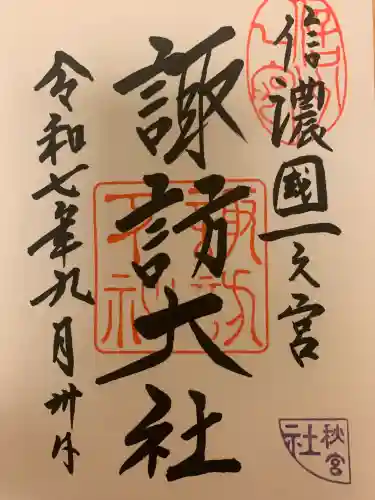 信濃國一之宮
諏訪大社
令和七年九月卅日
諏訪大社
秋宮
社